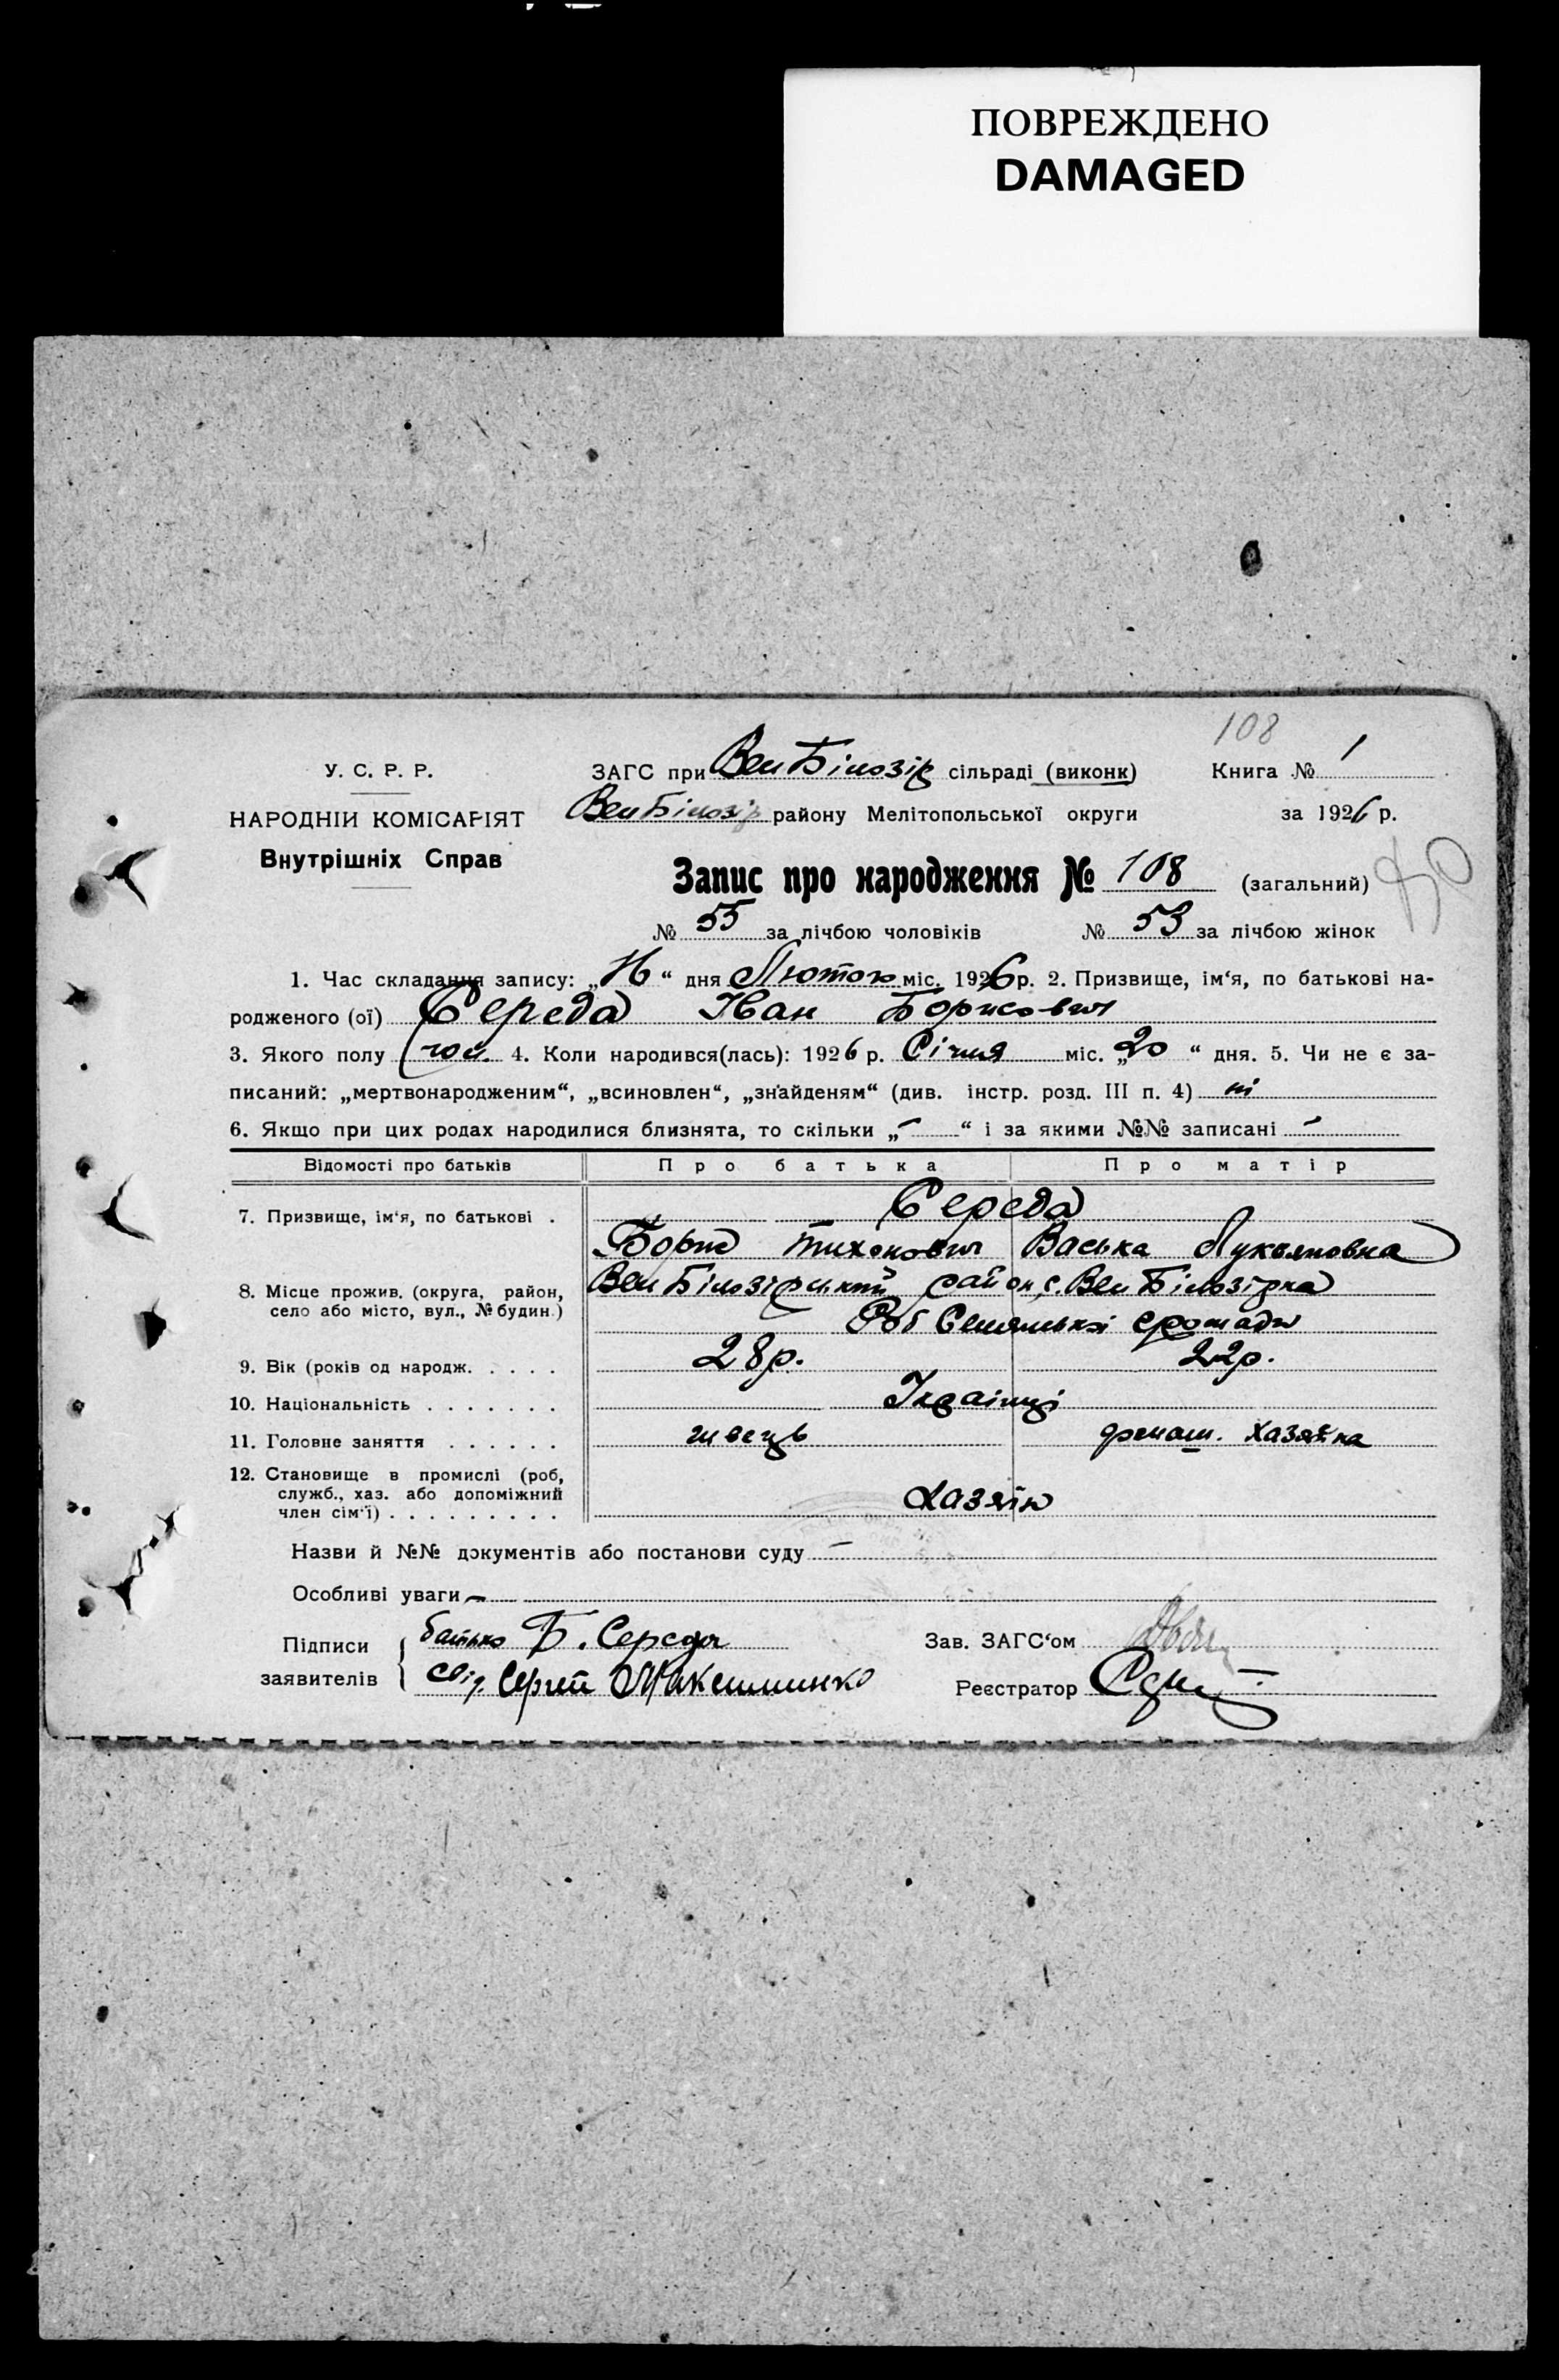 ПОВРЕЖДЕНО
DAMAGED
108
У. С. Р. Р.
ЗАГС при Вел Білозір сільраді (виконк)
Книга № 1
НАРОДНІЙ КОМІСАРІЯТ
Вел Білозір району Мелітопольської округи
за 1926 р.
Внутрішніх Справ
Запис про народження № 108 (загальний)
№ 55 за лічбою чоловіків № 53 за лічбою жінок
1. Час складання запису: „ “ дня Лютого міс. 1926 р. 2. Призвище, ім‘я, по батькові на-
родженого (ої) Середа Іван Борисович
3. Якого полу чол. 4. Коли народився(лась): 1926 р. Січня міс. „20 “ дня. 5. Чи не є за-
писаний: „мертвонародженим“, „всиновлен“, „знайденям“ (див. інстр. розд. III п. 4) ні
6. Якщо при цих родах народилися близнята, то скільки „-“ і за якими №№ записані -
Відомості про батьків Про батька Про матір
7. Призвище, ім‘я, по батькові . Середа
Борис Тихонович Васька Лукьяновна
8. Місце прожив. (округа, район, село або місто, вул., № будин.) Вел Білозірський район, с. Вел Білозірка
громади
9. Вік (років од народж. . . . . 28 р. 22 р.
10. Національність . . . . . . . Українці
11. Головне заняття . . . . . . швець домаш. хазяйка
12. Становище в промислі (роб,
служб., хаз. або допоміжний
член сім‘ї) . . . . . . . . . хазяїн
Назви й №№ документів або постанови суду -
Особливі уваги -
Підписи заявителів { батько Б. Середа
Зав. ЗАГС‘ом
свід. Сергей
Реєстратор